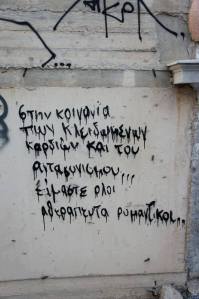 στην κοινωνία
των κλειδωμένων
καρδιών και του
ανταγωνισμου...
είμαστε ολοι
αθεραπευτα ρομαντικοι..